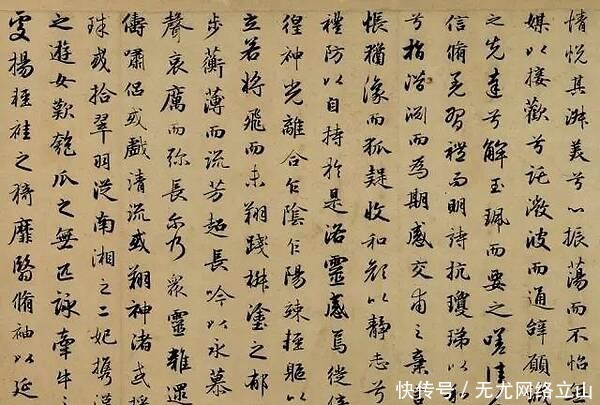 情悦其淑美兮心振蕩而不怡
媒以接歡兮託微波而通辭願
之先達兮解玉珮而要之嗟佳
信脩羌習禮而明詩抗瓊珶以和
兮指潛淵而為期感交甫之棄
悵猶豫而狐疑收和顏以靜志兮
禮防以自持於是洛靈感焉徙倚
徨神光離合乍陰乍陽竦輕軀以
立若將飛而未翔踐椒塗之郁
步蘅薄而流芳超長吟以永慕
聲哀厲而彌長爾乃衆靈雜遝
儔嘯侶或戲清流或翔神渚或採
珠或拾翠羽從南湘之二妃攜漢
之遊女歎匏瓜之無匹詠牽牛之
處揚輕袿之猗靡翳脩袖以延
快传号/无尤网络立山